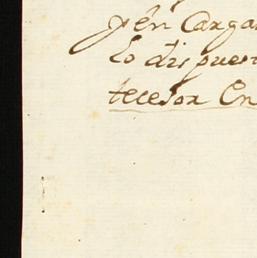 én Cargar
lo dispuest
tecesor En